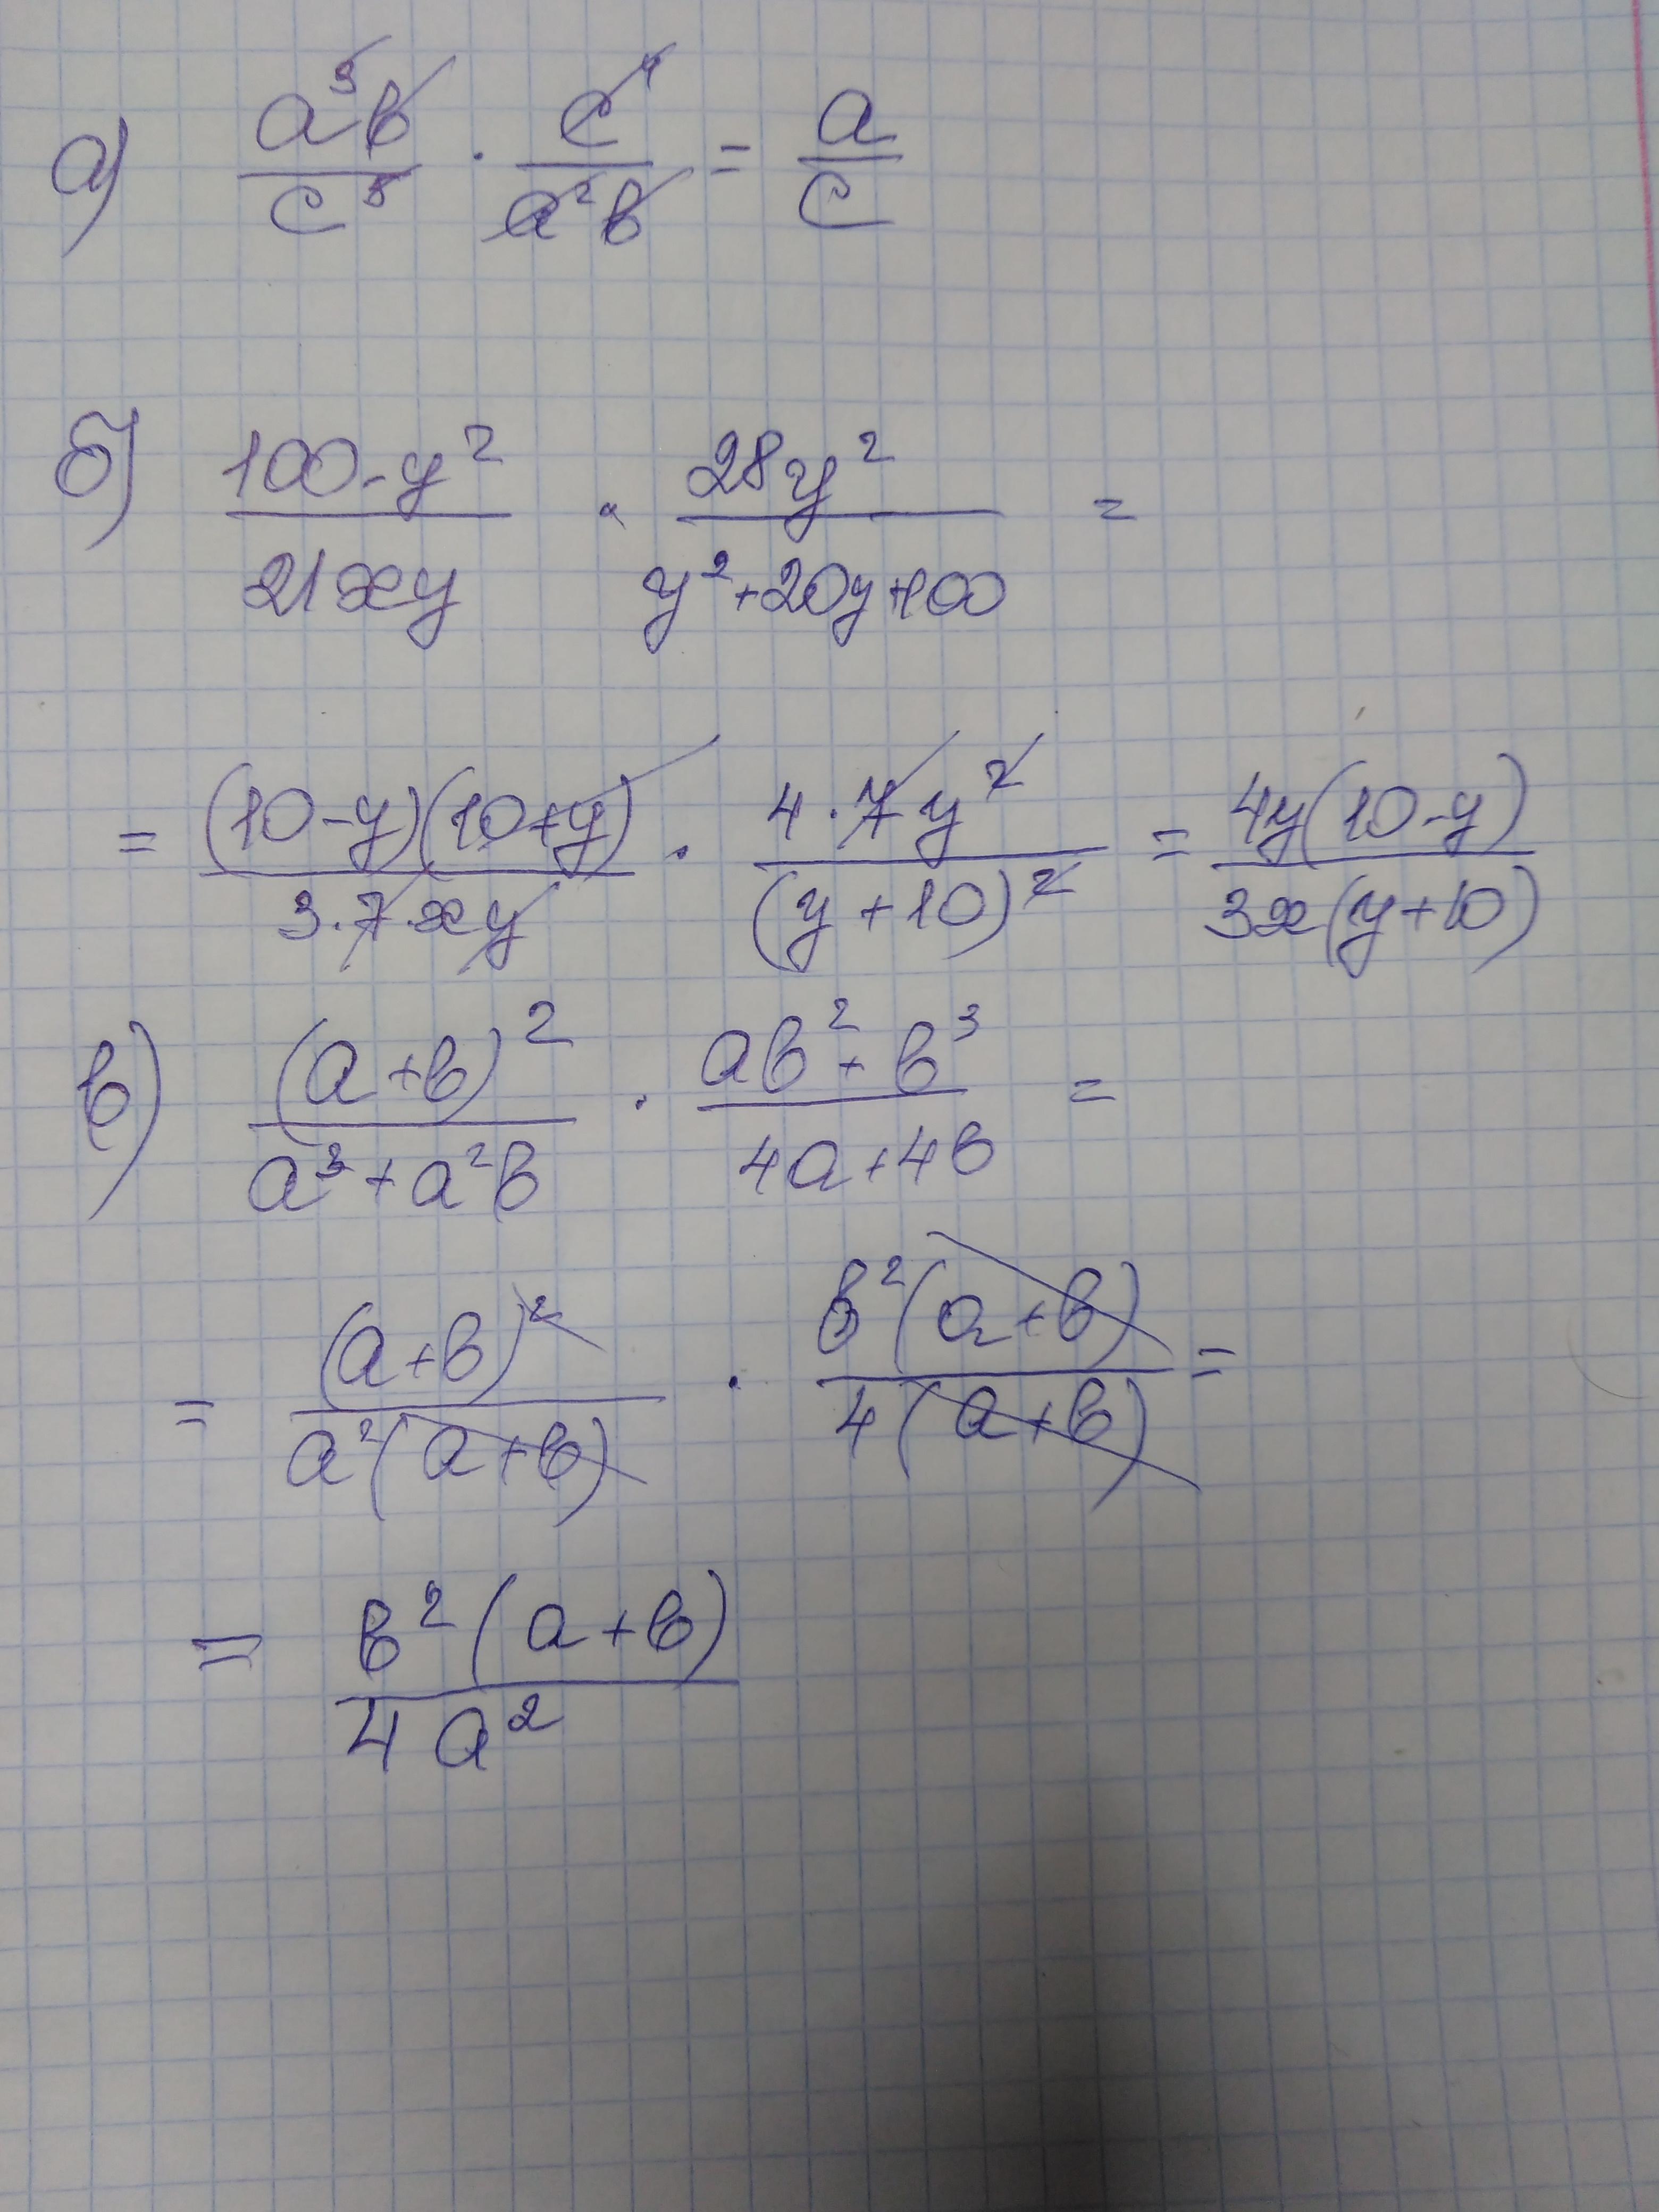 а) a³b/c⁵ · c⁴/a²b = a/c
б) 100-y²/21xy · 28y²/y²+20y+100 =
= (10-y)(10+y)/3·7·xy · 4·7y²/(y+10)² = 4y(10-y)/3x(y+10)
в) (a+b)²/a³+a²b · ab²+b³/4a+4b =
= (a+b)²/a²(a+b) · b²(a+b)/4(a+b) =
= b²(a+b)/4a²